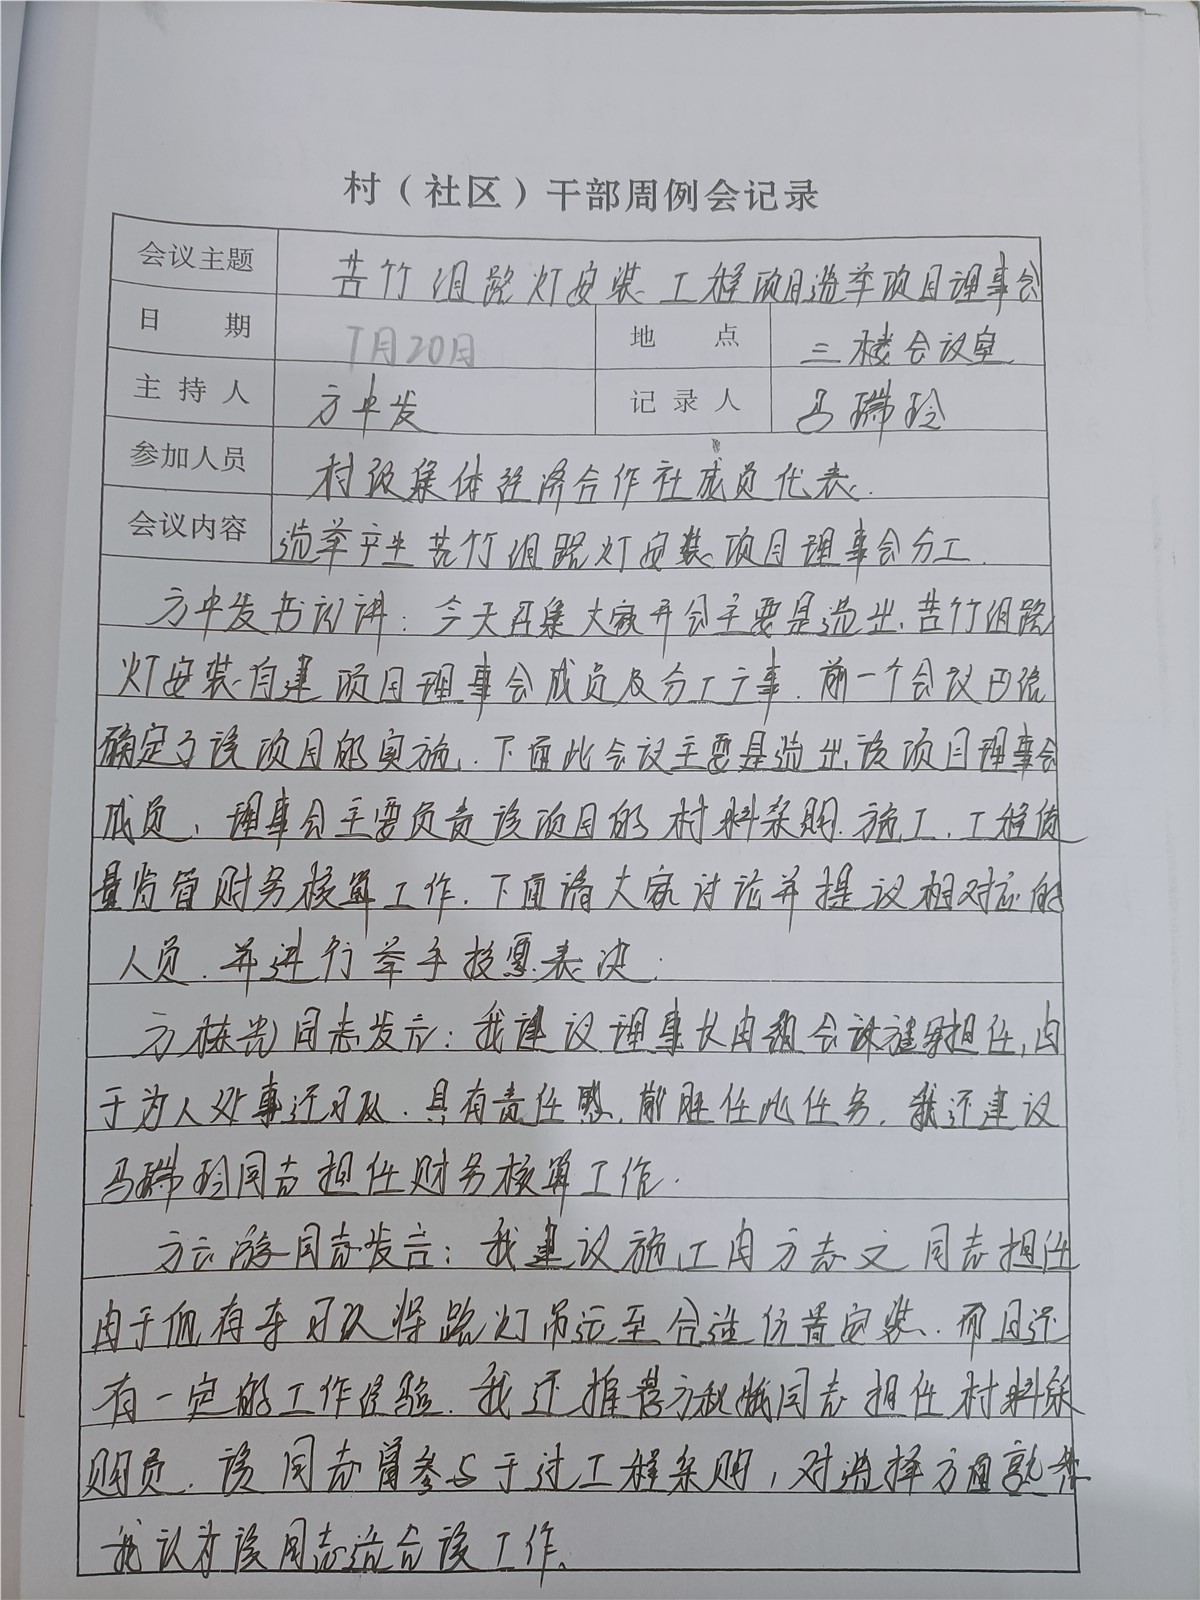 村（社区）干部周例会记录
会议主题 苦竹组路灯安装工程项目选举项目理事会
日期 7月20日 地点 三楼会议室
主持人 方中发 记录人 马瑞玲
参加人员 村级集体经济合作社成员代表.
会议内容 选举产生苦竹组路灯安装项目理事会分工.
方中发书记讲：今天召集大家开会主要是选出苦竹组路
灯安装自建项目理事会成员及分工之事.前一个会议已经
确定了该项目的实施.下面此会议主要是选出该项目理事会
成员,理事会主要负责该项目的材料采购.施工.工程质
量监管财务核算工作.下面请大家讨论并提议相对应的
人员.并进行举手投票表决.
方栋贵同志发言：我建议理事长由 担任,由
于为人处事还可以.具有责任感.能胜任此任务.我还建议
马瑞玲同志担任财务核算工作.
方云游同志发言：我建议施工由方志文同志担任
由于他有车可以将路灯吊运至合适位置安装.而且还
有一定的工作经验.我还推荐方秋娥同志担任材料采
购员.该同志曾参与于过工程采购,对选择方面
我认为该同志适合该工作.